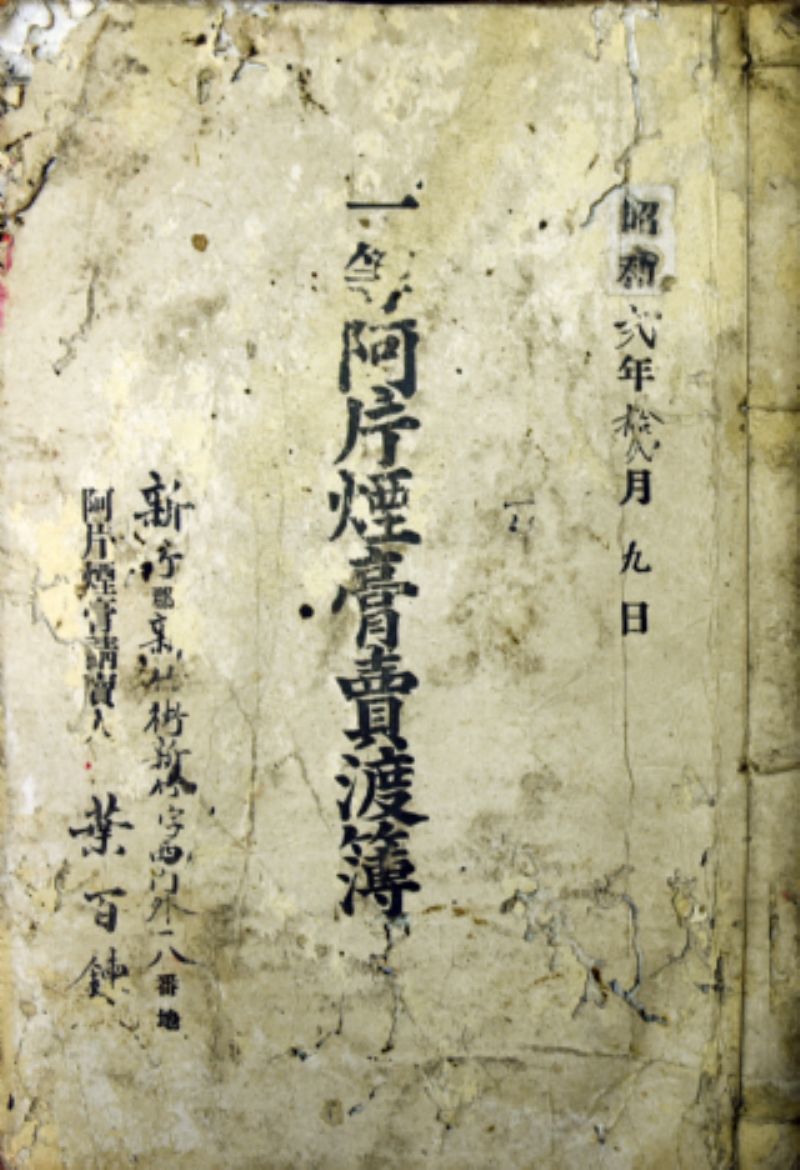 昭和弐年拾弐月九日
一等阿片煙膏賣渡簿
新竹郡新竹街新竹字西門外一八番地
阿片煙膏請賣人 葉百鍊